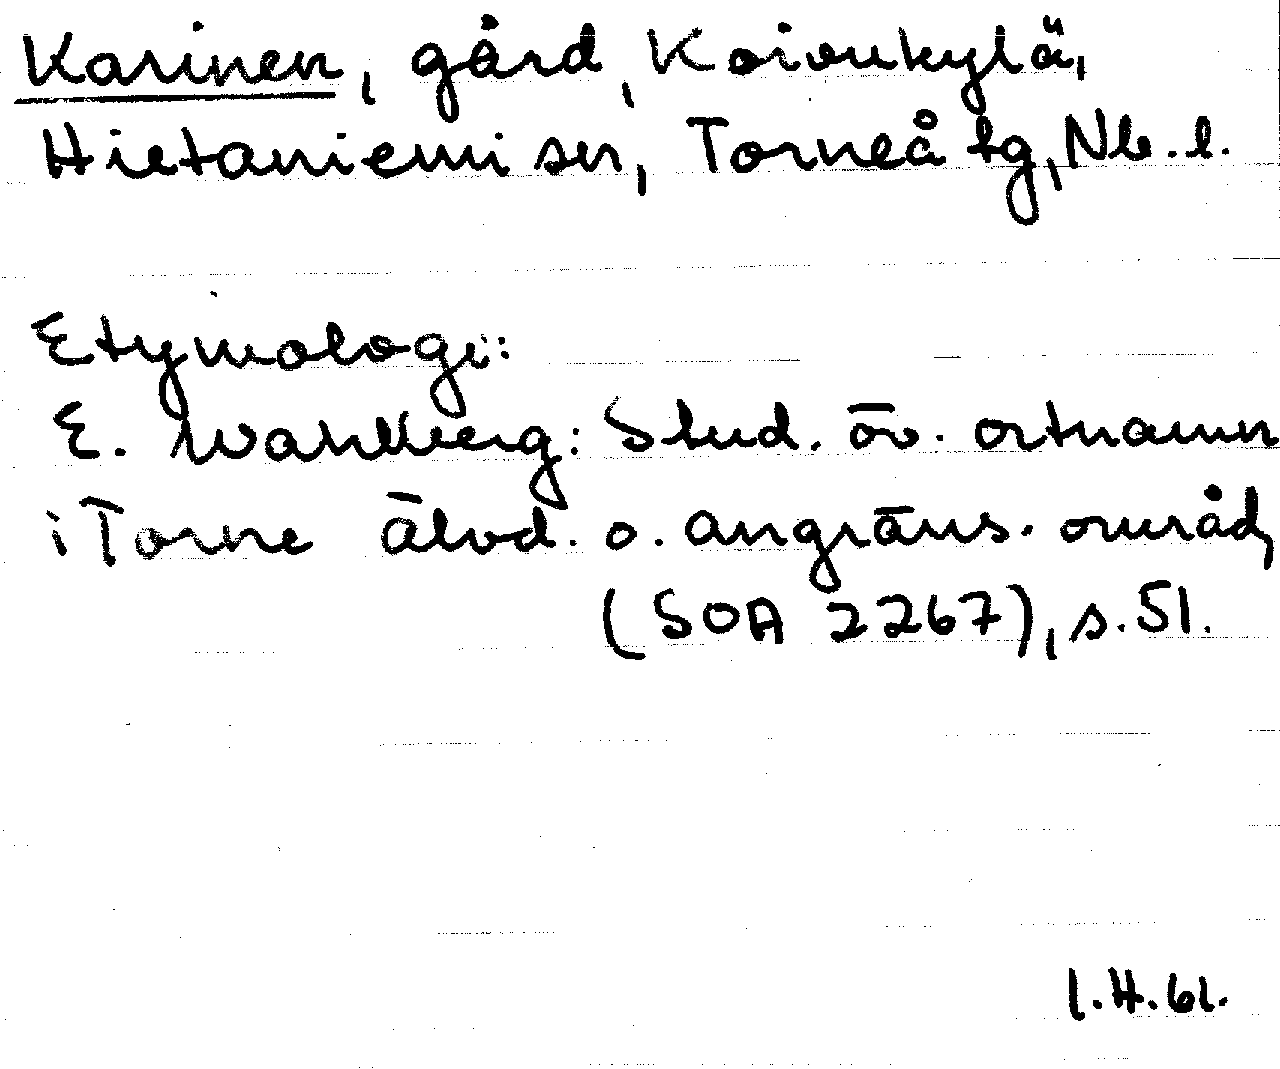 Karinen, gård, Koivukylä,
Hietaniemi sn, Torneå tg, Nb. l.
Etymologi:
E. Wahlberg: Stud. öv. ortnamn
i Torne älvd. o. angräns. områd
(SOA 2267), s. 51.
I.H.61.